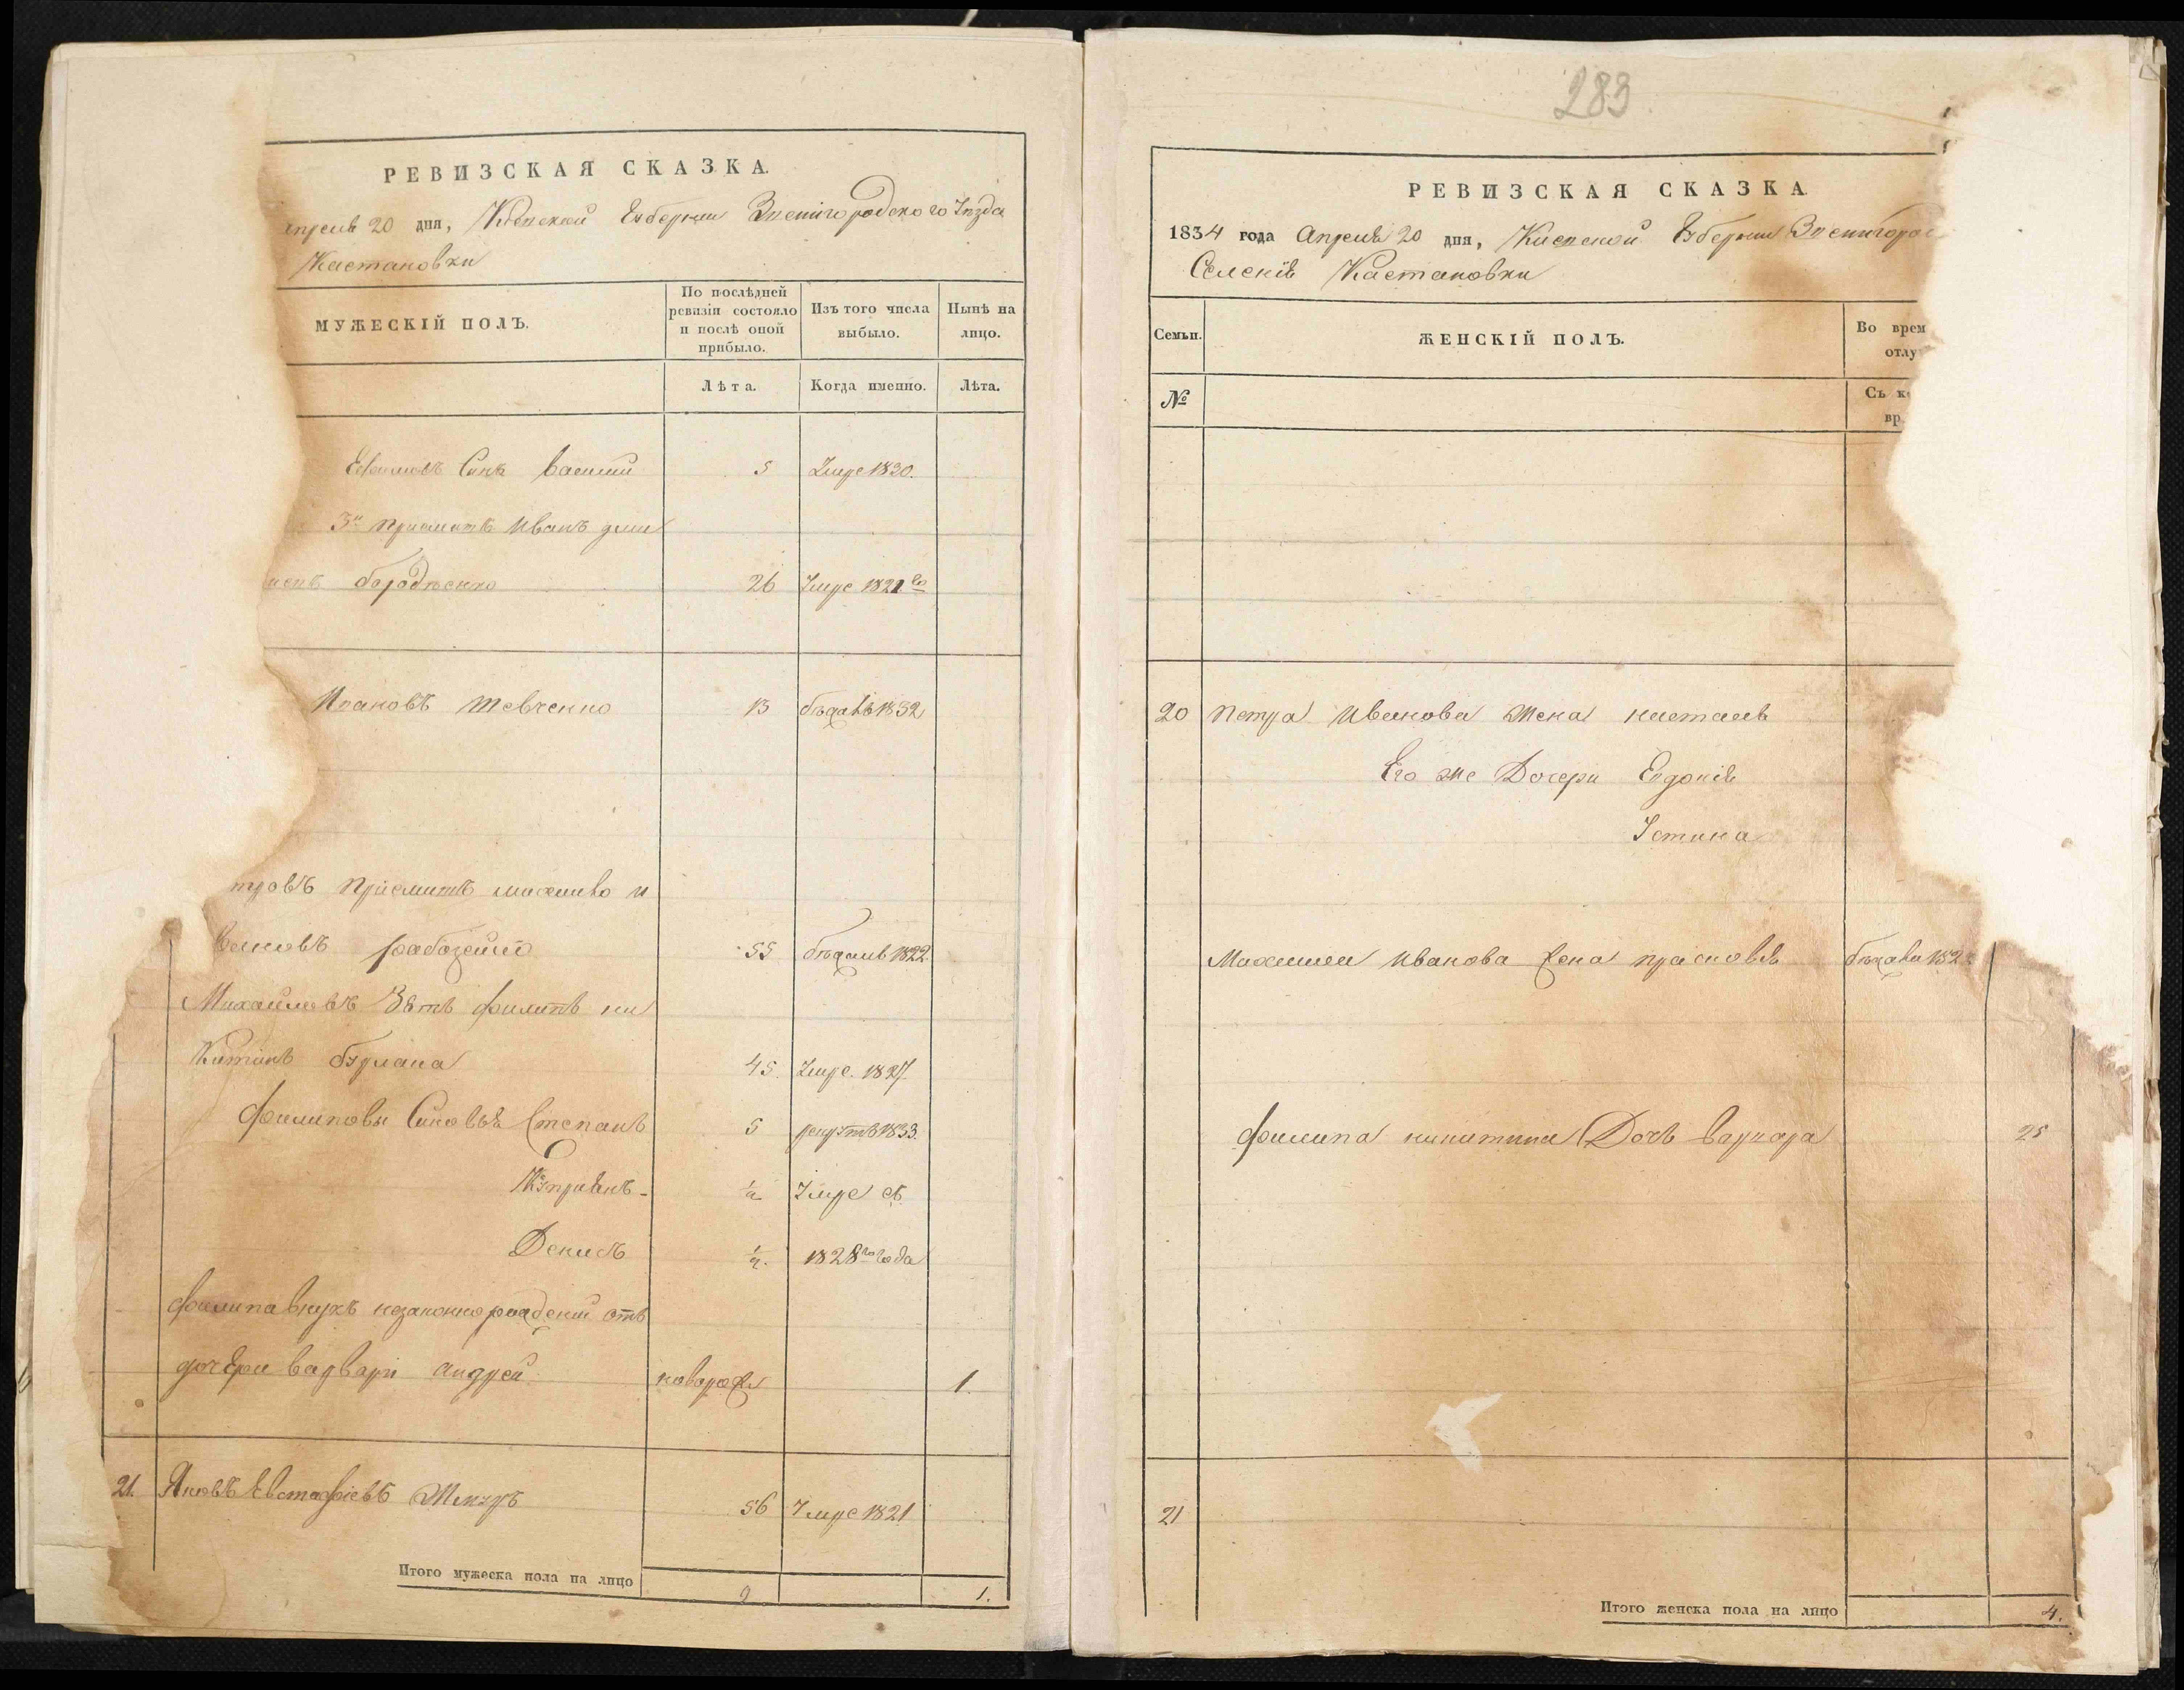 РЕВИЗСКАЯ СКАЗКА.
апреля 20 дня, Киевской Губерніи Звенигородскаго Уѣзда
Кастановки
МУЖЕСКІЙ ПОЛЪ.
По послѣдней ревизіи состояло и послѣ оной прибыло.
Изъ того числа выбыло.
Нынѣ на лицо.
Лѣта.
Когда именно.
Лѣта.
Синъ Василий 5 Умре 1830.
3й приематъ Иванъ
26 Умре 1821го
Ивановъ Шевченко 13 бѣжавъ 1832
тровъ приематъ
55 бѣжавъ 1822.
Михайловъ Зять Филипъ ни
Китинъ Бурлака 45. Умре. 1827
Филиповы Синовья Степанъ 5 рекрутъ 1833.
Купріянъ - ½ Умре съ
Денисъ ½. 1828го года
Филипа внукъ незаконнорожденій отъ
дочери варвари андрей новорож 1.
21. Яковъ Евстафіевъ 56 Умре 1821
Итого мужеска пола на лицо 9 1.
283
РЕВИЗСКАЯ СКАЗКА
1834 года Апреля 20 дня, Киевской Губерніи Звенигород
Селенія Кастановки
Семьи.
ЖЕНСКІЙ ПОЛЪ.
Во врем
отлу
№
Съ ко
вр
20 Петра Иванова жена настася
Его же Дочери Евдокія
Устина
Иванова жена прасковя бѣжала 182
Филипа никитина Дочь варвара 25
21
Итого женска пола на лицо 4.